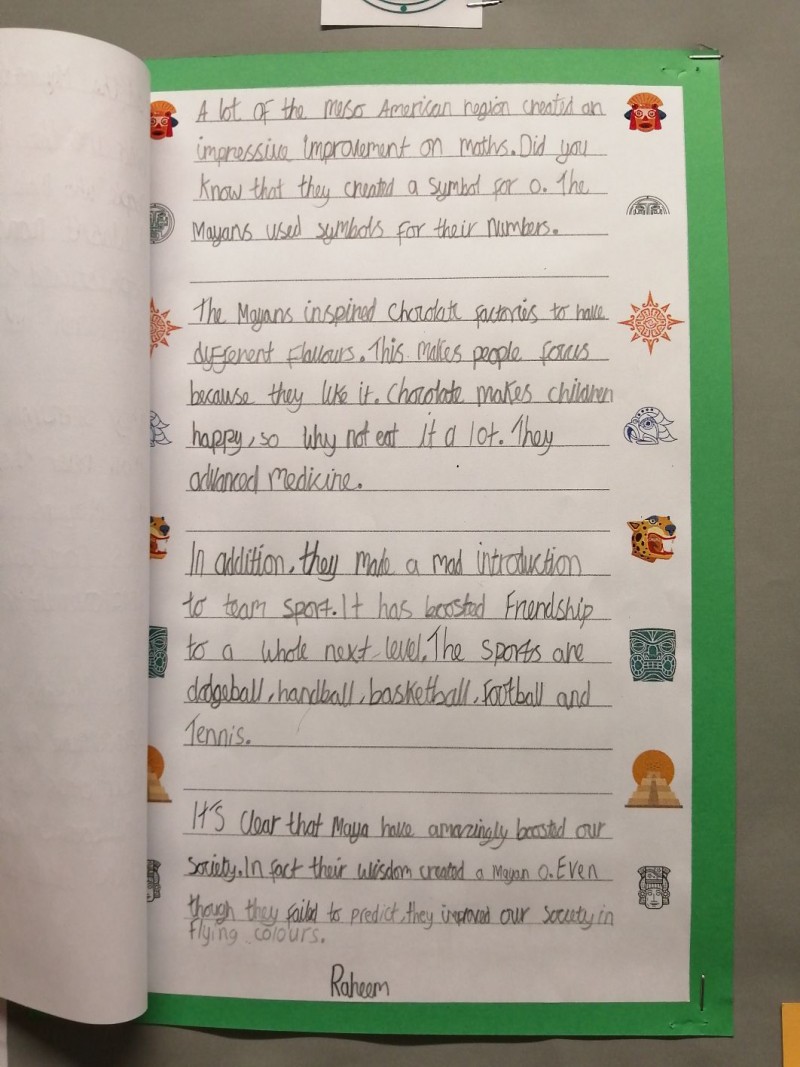 A lot of the meso American region created an
impressive improvement on maths. Did you
know that they created a symbol for 0. The
Mayans used symbols for their numbers.
The Mayans inspired chocolate factories to have
different flavours. This makes people focus
because they like it. Chocolate makes children
happy, so why not eat it a lot. They
advanced medicine.
In addition, they made a mad introduction
to team sport. It has boosted friendship
to a whole next level. The sports are
dodgeball, handball, basketball, football and
Tennis.
It's clear that Maya have amazingly boosted our
society. In fact their wisdom created a Mayan 0. Even
though they faild to predict, they improved our society in
flying colours.
Raheem